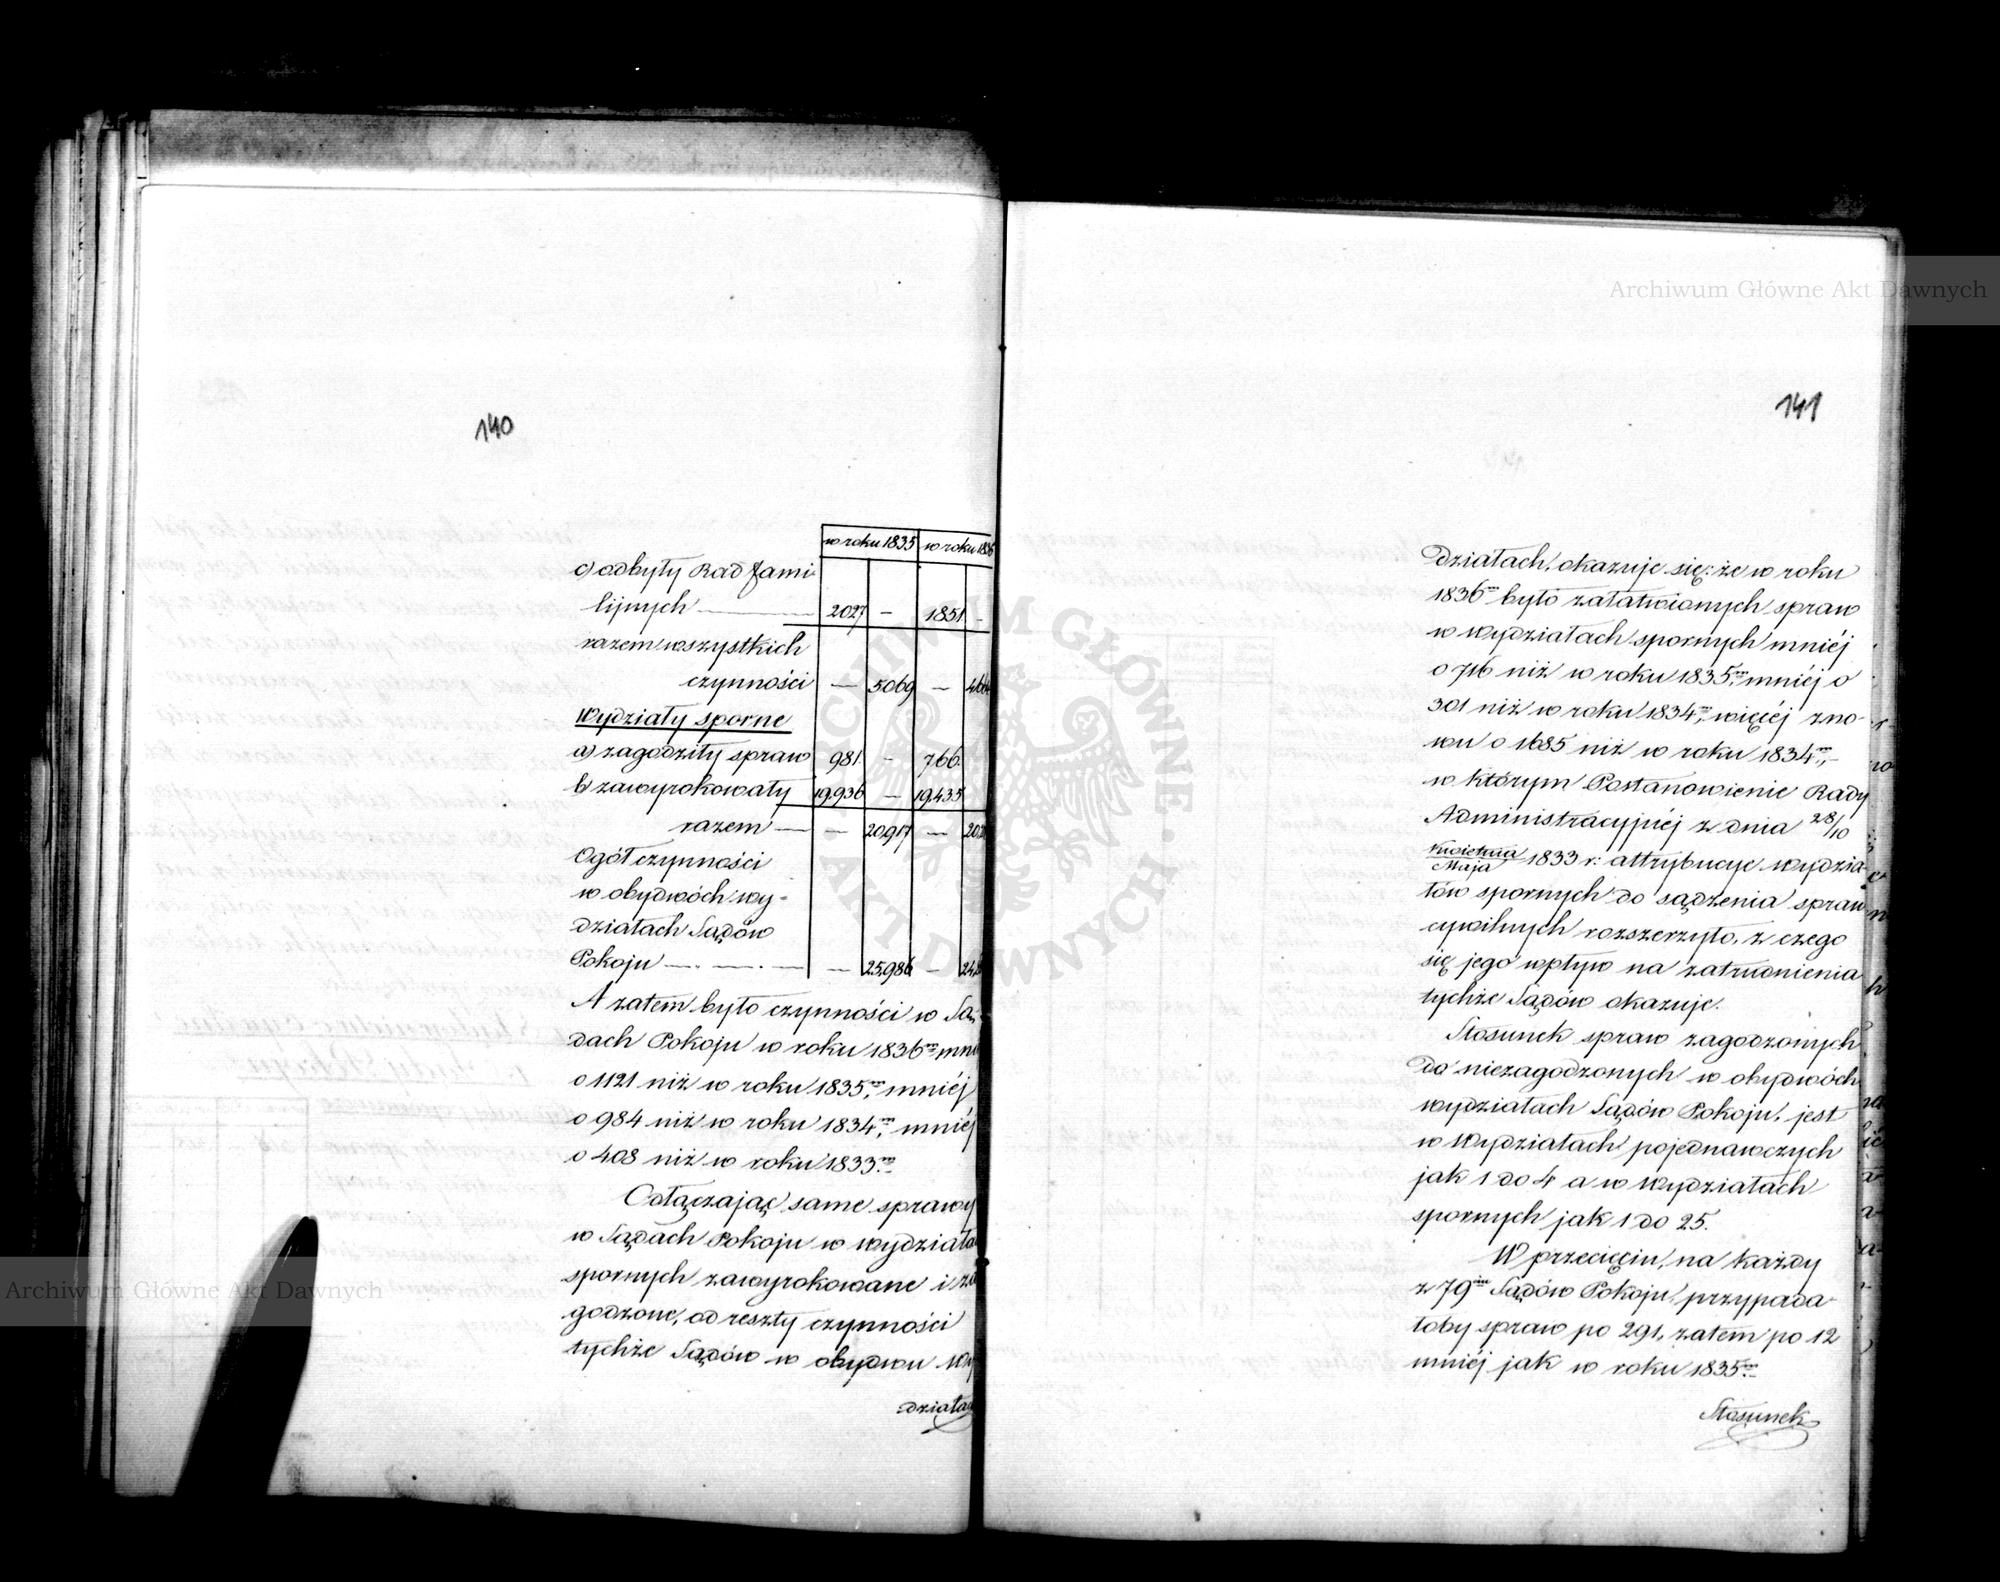 Archiwum Główne Akt Dawnych
140
w roku 1835 w roku 1836
c) odbyły Rad fami-
lijnych 2027 — 1851 —
razem wszystkich
czynności — 5069 —
Wydziały sporne
a) zagodziły spraw 981 — 766
b) zawyrokowały 19,936 — 19,435
razem — — 20,917 —
Ogół czynności
w obydwóch wy-
działach Sądów
Pokoju — — 25,986 —
A zatem było czynności w Są-
dach Pokoju w roku 1836m
o 1121 niż w roku 1835m, mniéj
o 984 niż w roku 1834m, mniéj
o 408 niż w roku 1833m
Odłączając same sprawy
w Sądach Pokoju w wydziała
spornych zawyrokowane i za
godzone, od reszty czynności
tychże Sądów w obydwu wy
działa
141
działach, okazuje się: że w roku
1836m było załatwionych spraw
w wydziałach spornych mniéj
o 716 niż w roku 1835m, mniéj o
301 niż w roku 1834m, więcéj zno-
wu o 1685 niż w roku 1834m,
w którym Postanowienie Rady
Administracyjnéj z dnia 28/10
Kwietnia/Maja 1833 r: attrybucye wydzia-
łów spornych do sądzenia spraw
cywilnych rozszerzyło, z czego
się jego wpływ na zatrudnienia
tychże Sądów okazuje.
Stosunek spraw zagodzonych
do niezagodzonych w obydwóch
wydziałach Sądów Pokoju, jest
w Wydziałach pojednawczych
jak 1 do 4 a w Wydziałach
spornych jak 1 do 25.
W przecięciu, na każdy
z 79iu Sądów Pokoju, przypada-
łoby spraw po 291, zatem po 12
mniéj jak w roku 1835m
Stosunek
Archiwum Główne Akt Dawnych
ARCHIWUM GŁÓWNE AKT DAWNYCH